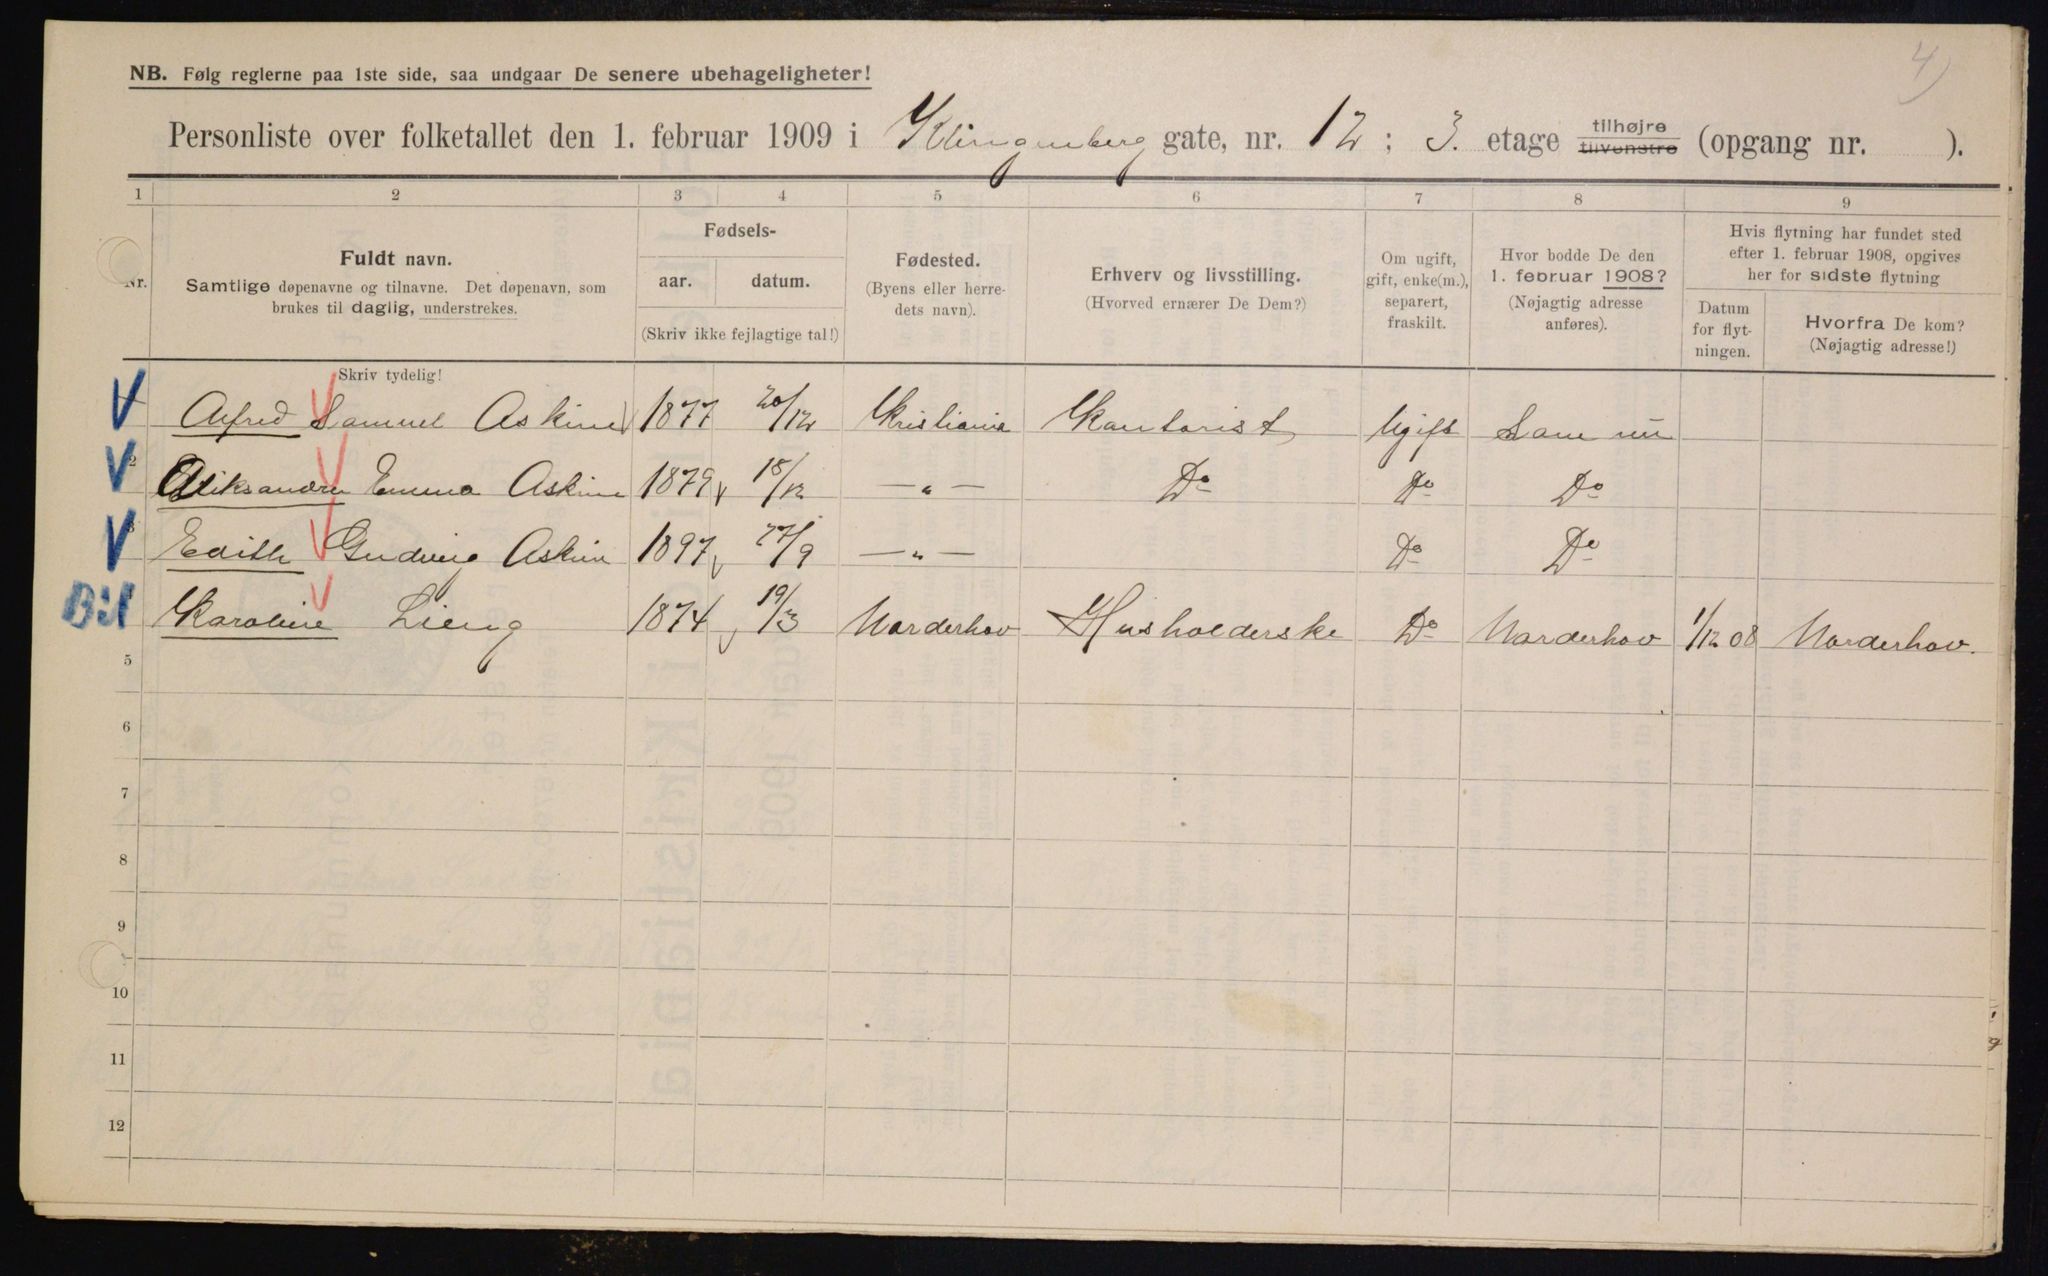 4)
NB. Følg reglerne paa 1ste side, saa undgaar De senere ubehageligheter!
Personliste over folketallet den 1. februar 1909 i Klingenberg gate, nr. 12 ; 3. etage tilhøjre tilvenstre (opgang nr. ).
1 2 3 4 5 6 7 8 9
Nr.
Fuldt navn.
Samtlige døpenavne og tilnavne. Det døpenavn, som
brukes til daglig, understrekes.
Skriv tydelig!
Fødsels-
aar. datum.
(Skriv ikke fejlagtige tal!)
Fødested.
(Byens eller herre-
dets navn).
Erhverv og livsstilling.
(Hvorved ernærer De Dem?)
Om ugift,
gift, enke(m.),
separert,
fraskilt.
Hvor bodde De den
1. februar 1908?
(Nøjagtig adresse
anføres).
Hvis flytning har fundet sted
efter 1. februar 1908, opgives
her for sidste flytning
Datum
for flyt-
ningen.
Hvorfra De kom?
(Nøjagtig adresse!)
Alfred Samuel Askim 1877 20/12 Kristiania Kontorist Ugift Som nu
2 Aleksandra Emma Askim 1879 18/12 —„— Do Do Do
3 Edith Gudveig Askim 1897 27/9 —„— Do Do
Bil Karoline Lieng 1874 19/3 Norderhov Husholderske Do Norderhov 1/12 08 Norderhov.
5
6
7
8
9
10
11
12